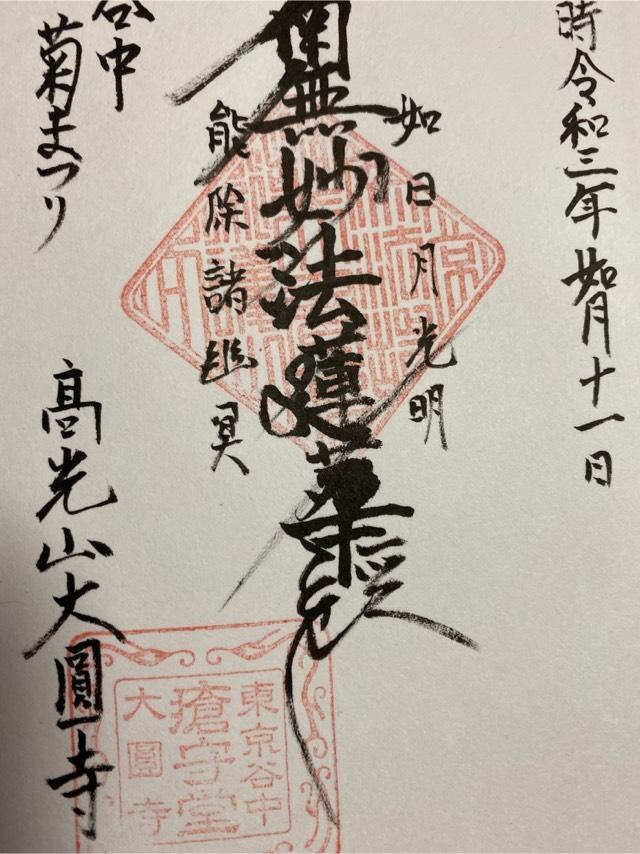 時令和三年如月十一日
如日月光明
南無妙法蓮華経
能除諸幽冥
谷中
菊まつり
高光山大圓寺
東京谷中
瘡守堂
大圓寺